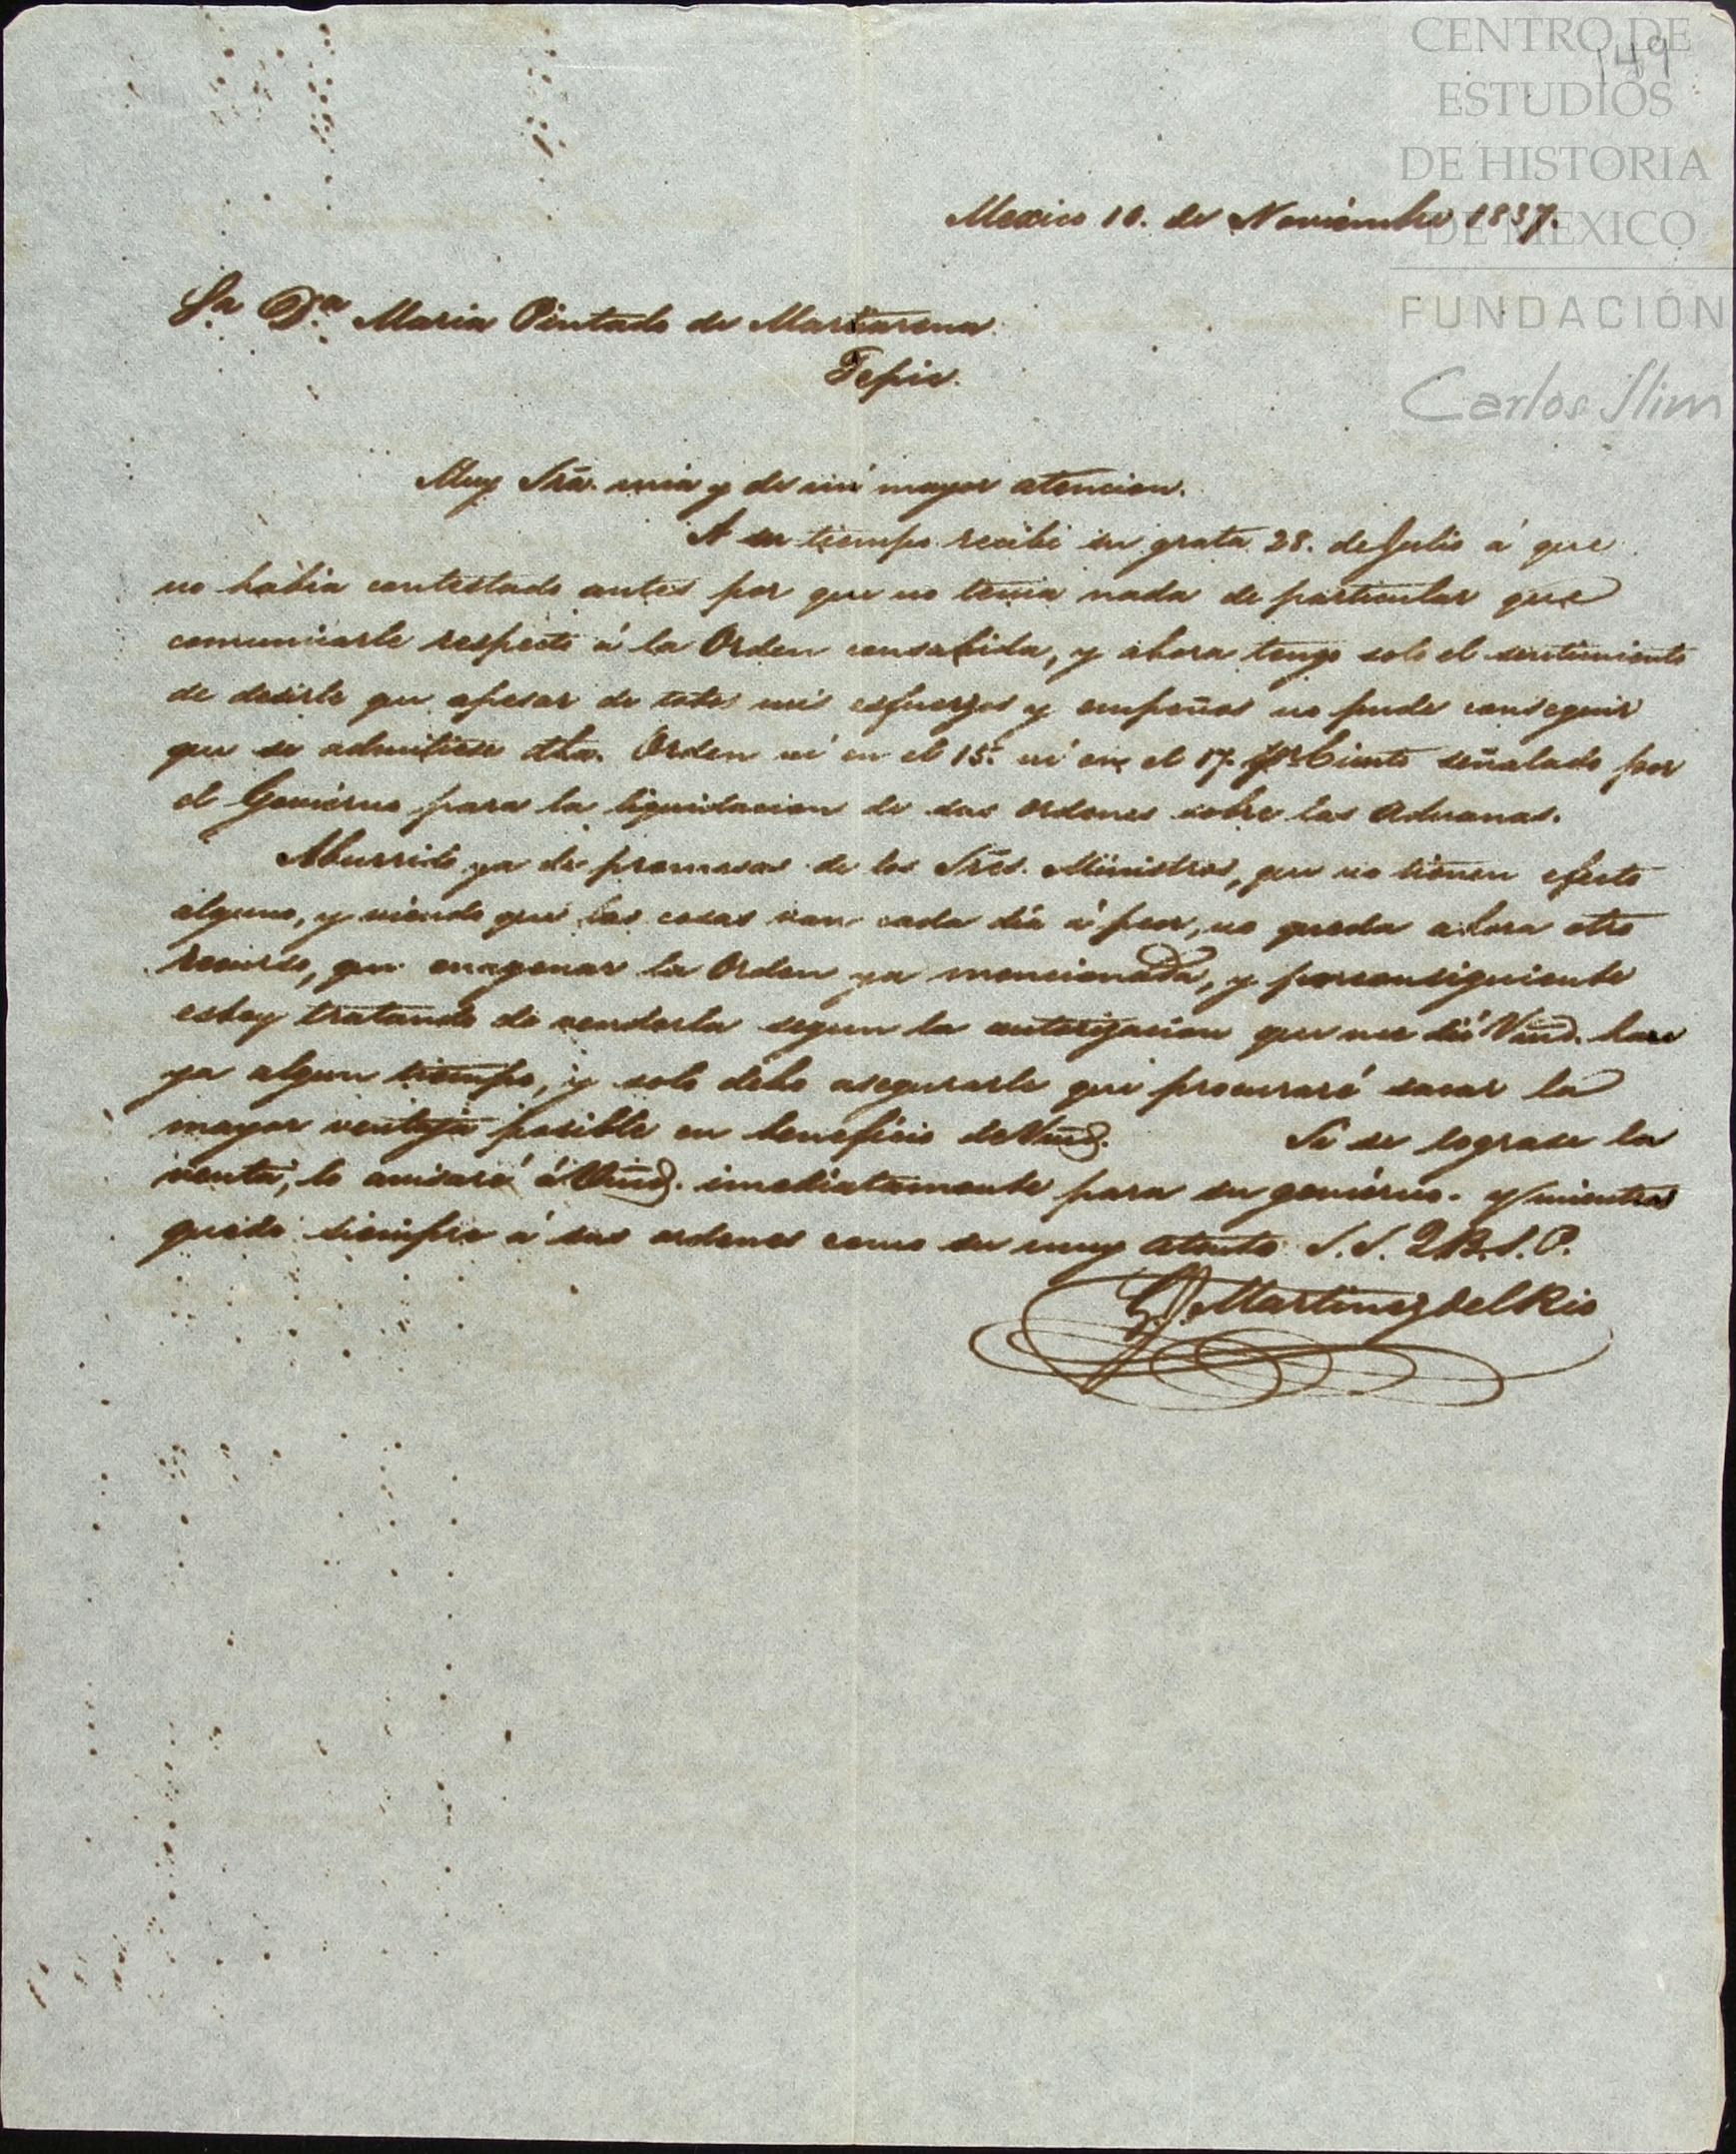 CENTRO DE
ESTUDIOS
DE HISTORIA
DE MEXICO
FUNDACIÓN
Carlos Slim
149
Mexico 10. de Noviembre 1837.
Sa. Da. Maria Pintado de Martiarena
Tepic.
Muy Sra. mia y de mi mayor atencion.
A su tiempo recibi su grata 28. de Julio á que
no habia contestado antes por que no tenia nada de particular que
comunicarle respecto á la Orden consabida, y ahora tengo solo el sentimiento
de desirle que apesar de todos mis esfuerzos y empeños no pude conseguir
que se admitiese dha. Orden ni en el 15. ni en el 17. pr. Ciento señalado por
el Govierno para la liquidacion de sus ordenes sobre las Aduanas.
Aburrido ya de promesas de los Sres. Ministros, que no tienen efecto
alguno, y viendo que las cosas van cada dia á peor, no queda ahora otro
recurso, que enagenar la Orden ya mencionada, y porconsiguiente
estoy tratando de venderla segun la autorizacion que me dió Vmd. hace
ya algun tiempo, y solo debo asegurarle que procuraré sacar la
mayor ventaja posible en beneficio de Vmd. Si se lograse la
venta, lo avisaré á Vmd. imediatamente para su govierno. y mientras
quedo siempre á sus ordenes como su muy atento S. S. Q.B.S.P.
Martinez del Rio